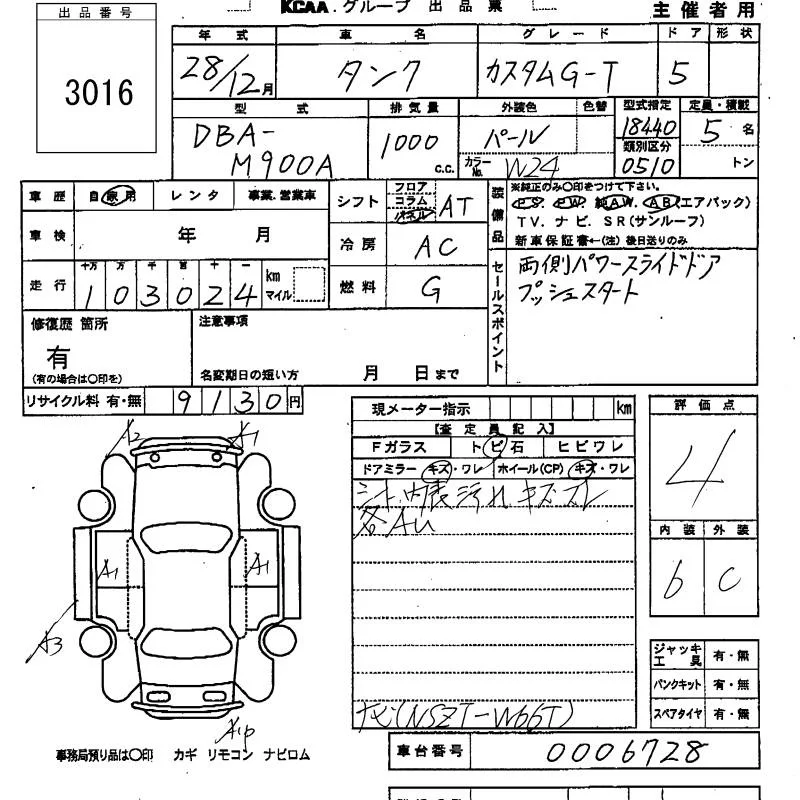 出品番号
3016
KCAA.グループ 出品票
主催者用
年式 車名 グレード ドア 形状
28/12月 タンク カスタムG-T 5
型式 排気量 外装色 色替 型式指定 定員・積載
DBA-M900A 1000 c.c. パール 18440 5 名
カラーNo. W24 類別区分 0510 トン
車歴 自家用 レンタ 事業.営業車
シフト フロア コラム パネル AT
装備品 ※純正のみ○印をつけて下さい。
P.S. P.W. 純A.W. A.B(エアバック)
T.V. ナビ. S R(サンルーフ)
新車保証書←(注)後日送りのみ
車検 年 月
冷房 AC
走行 十万 万 千 百 十 一
103024 km マイル
燃料 G
セールスポイント
両側パワースライドドア
プッシュスタート
修復歴 箇所
有
(有の場合は○印を)
注意事項
名変期日の短い方 月 日まで
リサイクル料 有・無 9130円
現メーター指示 km
【査定員記入】
Fガラス トビ石 ヒビワレ
ドアミラー キズ・ワレ ホイール(CP) キズ・ワレ
シート、内装汚れ キズ スレ
各AU
ナビ(NSZT-W66T)
評価点
4
内装 外装
b C
ジャッキ工具 有・無
パンクキット 有・無
スペアタイヤ 有・無
A2 A1
A1 A1
A3
事務局預り品は○印 カギ リモコン ナビロム
車台番号 0006728